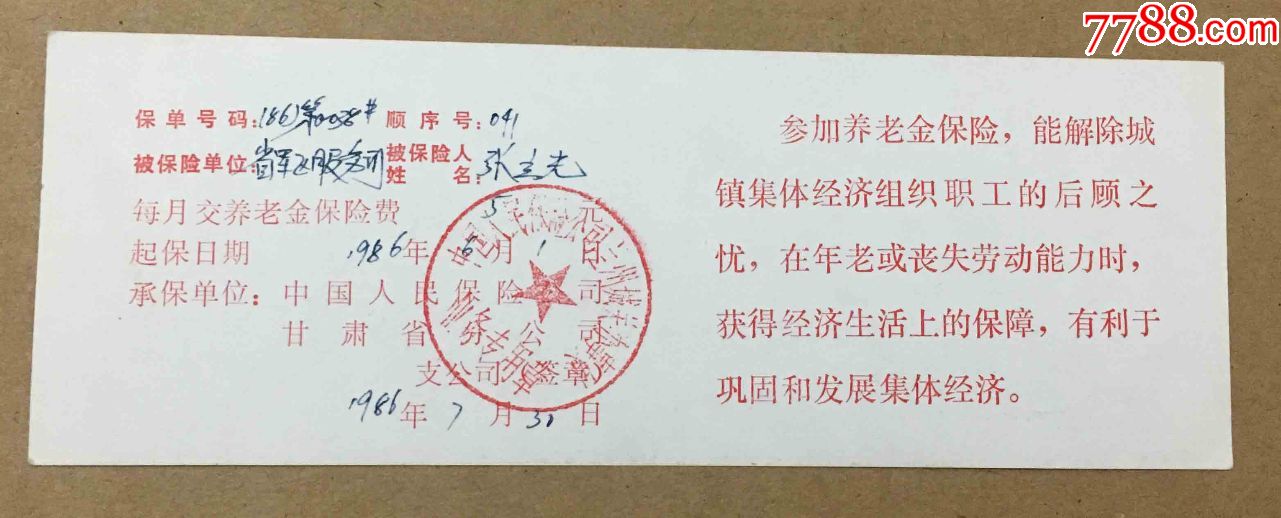 7788.com
保单号码:(86)第0038# 顺序号:041
被保险单位: 被保险人姓名:张立光
每月交养老金保险费 5 元
起保日期 1986年 6月 1日
承保单位:中国人民保险公司
甘肃省 分公司
支公司 签章
1986年 7月 30日
参加养老金保险,能解除城
镇集体经济组织职工的后顾之
忧,在年老或丧失劳动能力时,
获得经济生活上的保障,有利于
巩固和发展集体经济。
业务专用章